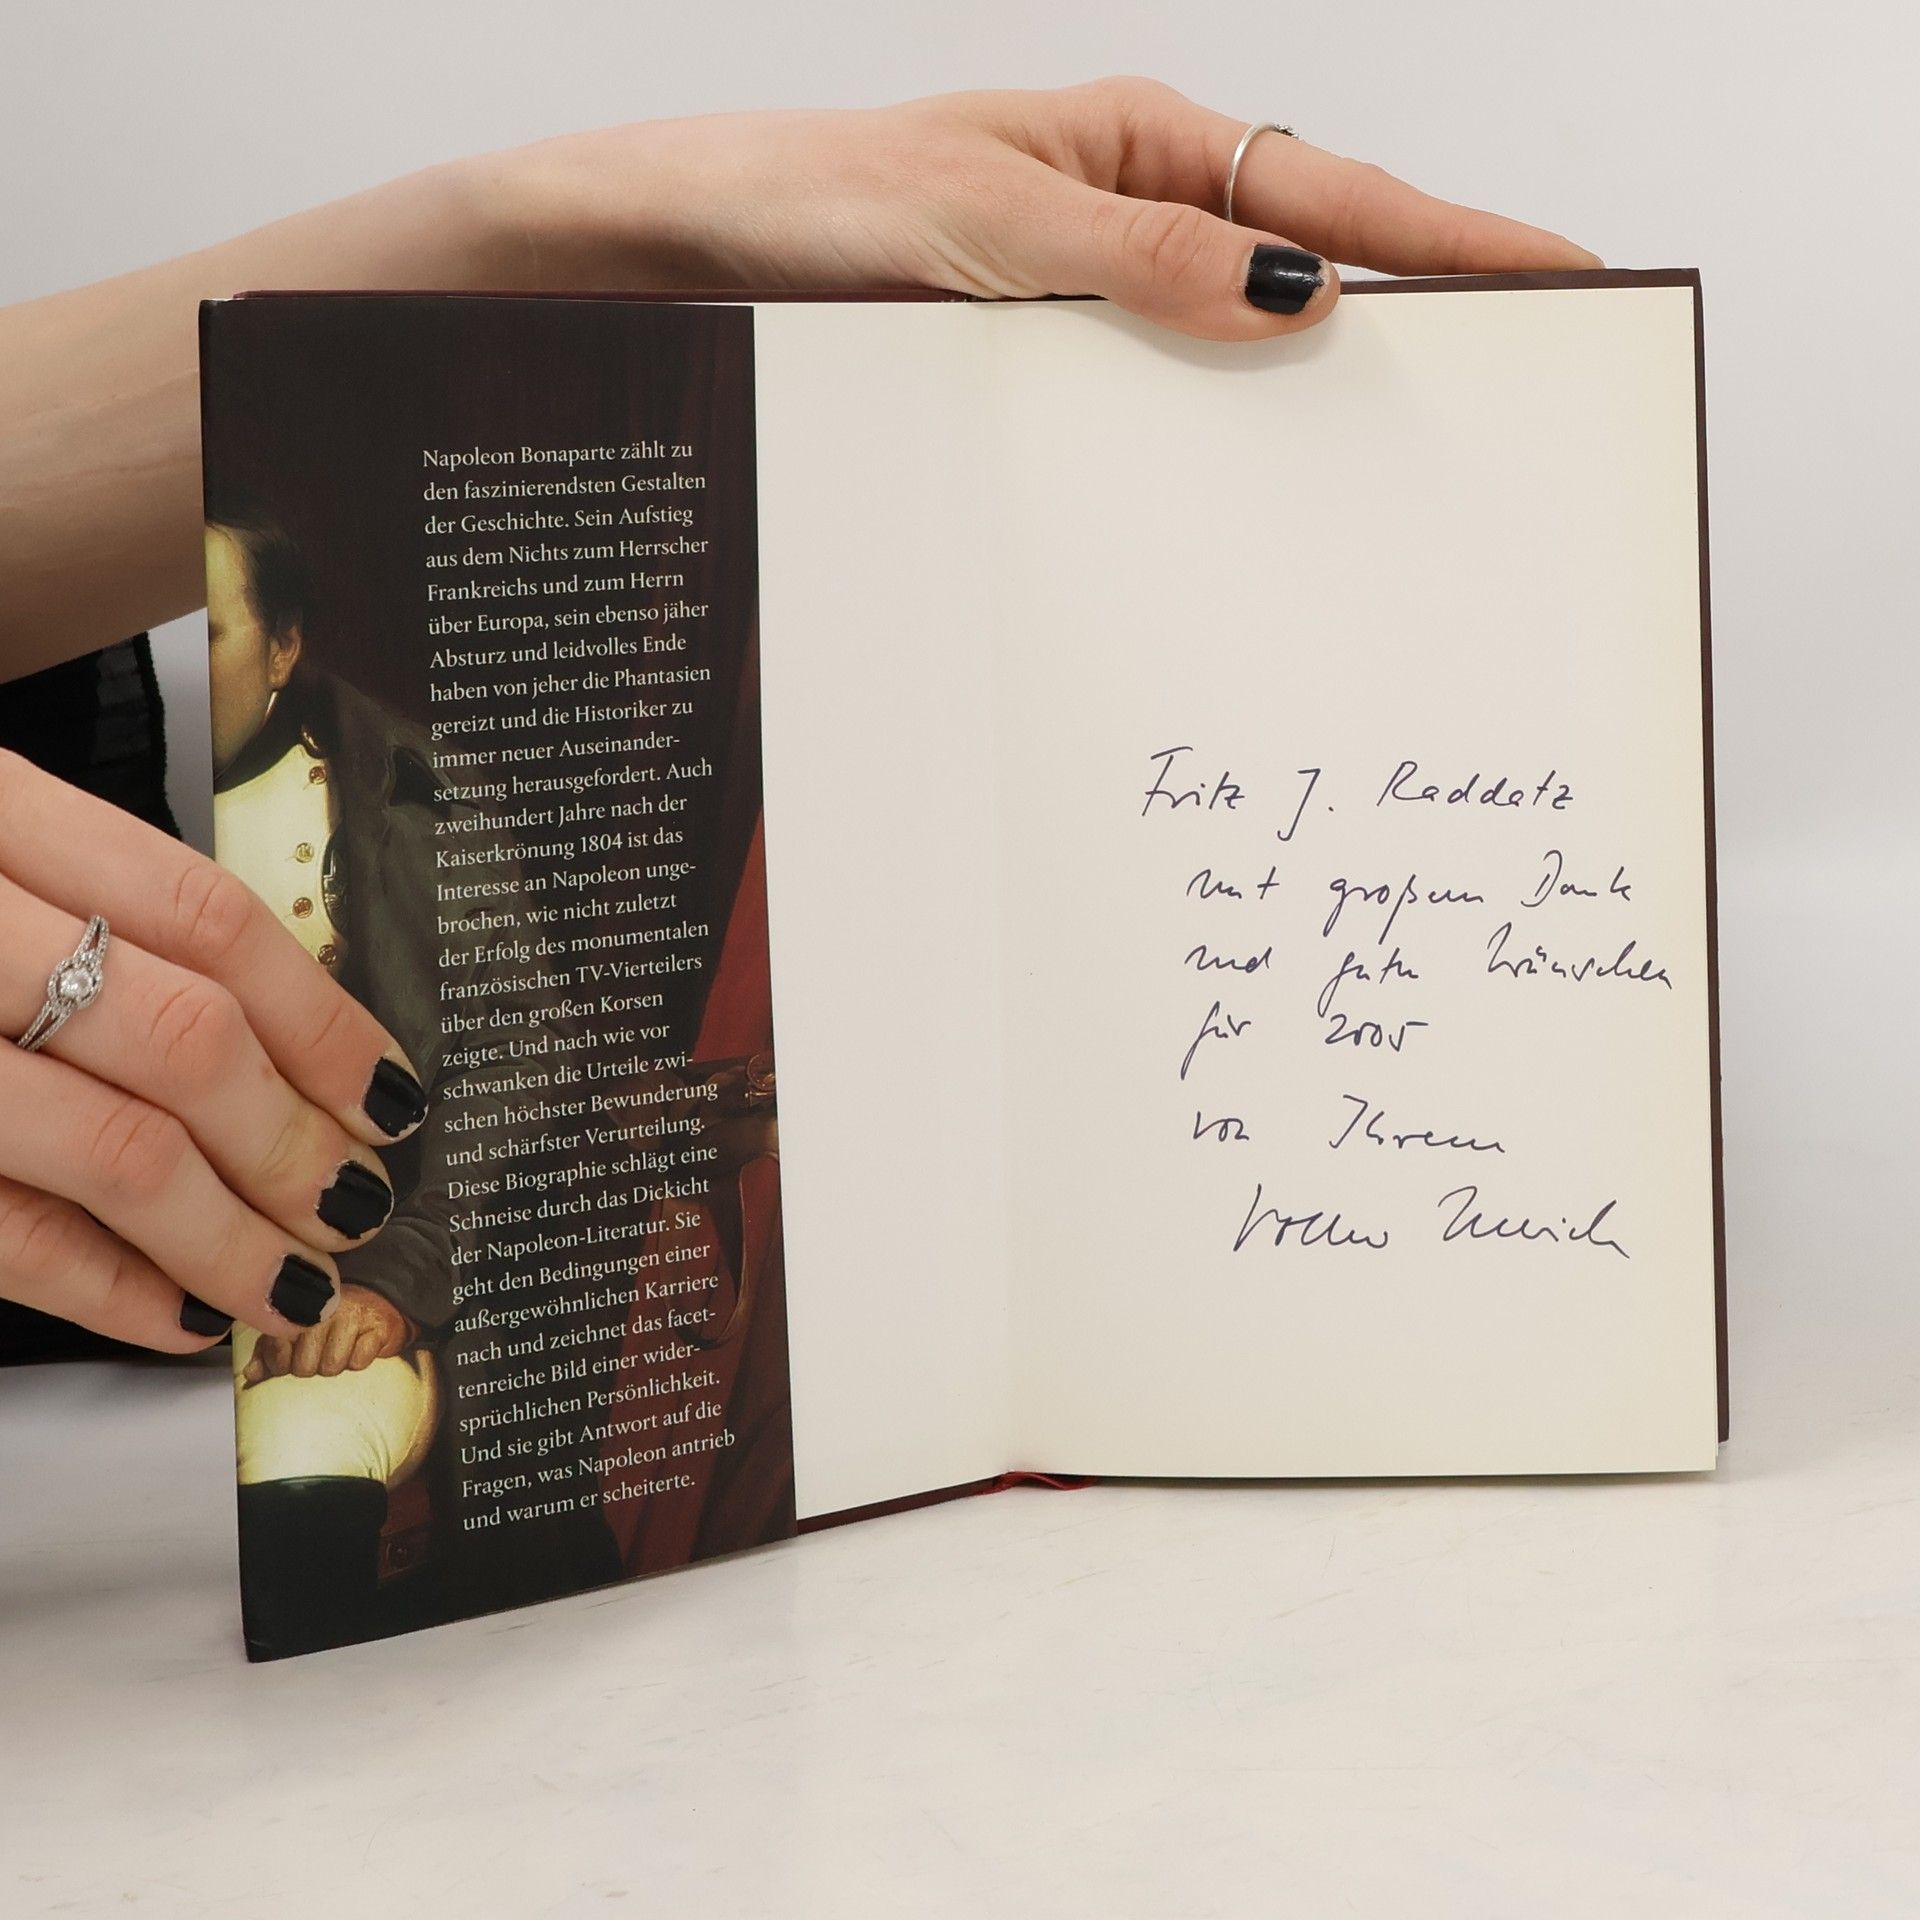 Napoleon Bonaparte zählt zu
den faszinierendsten Gestalten
der Geschichte. Sein Aufstieg
aus dem Nichts zum Herrscher
Frankreichs und zum Herrn
über Europa, sein ebenso jäher
Absturz und leidvolles Ende
haben von jeher die Phantasien
gereizt und die Historiker zu
immer neuer Auseinander-
setzung herausgefordert. Auch
zweihundert Jahre nach der
Kaiserkrönung 1804 ist das
Interesse an Napoleon unge-
brochen, wie nicht zuletzt
der Erfolg des monumentalen
französischen TV-Vierteilers
über den großen Korsen
zeigte. Und nach wie vor
schwanken die Urteile zwi-
schen höchster Bewunderung
und schärfster Verurteilung.
Diese Biographie schlägt eine
Schneise durch das Dickicht
der Napoleon-Literatur. Sie
geht den Bedingungen einer
außergewöhnlichen Karriere
nach und zeichnet das facet-
tenreiche Bild einer wider-
sprüchlichen Persönlichkeit.
Und sie gibt Antwort auf die
Fragen, was Napoleon antrieb
und warum er scheiterte.
Fritz J. Raddatz
mit großem Dank
und guten Wünschen
für 2005
von Ihrem
Volker Ullrich